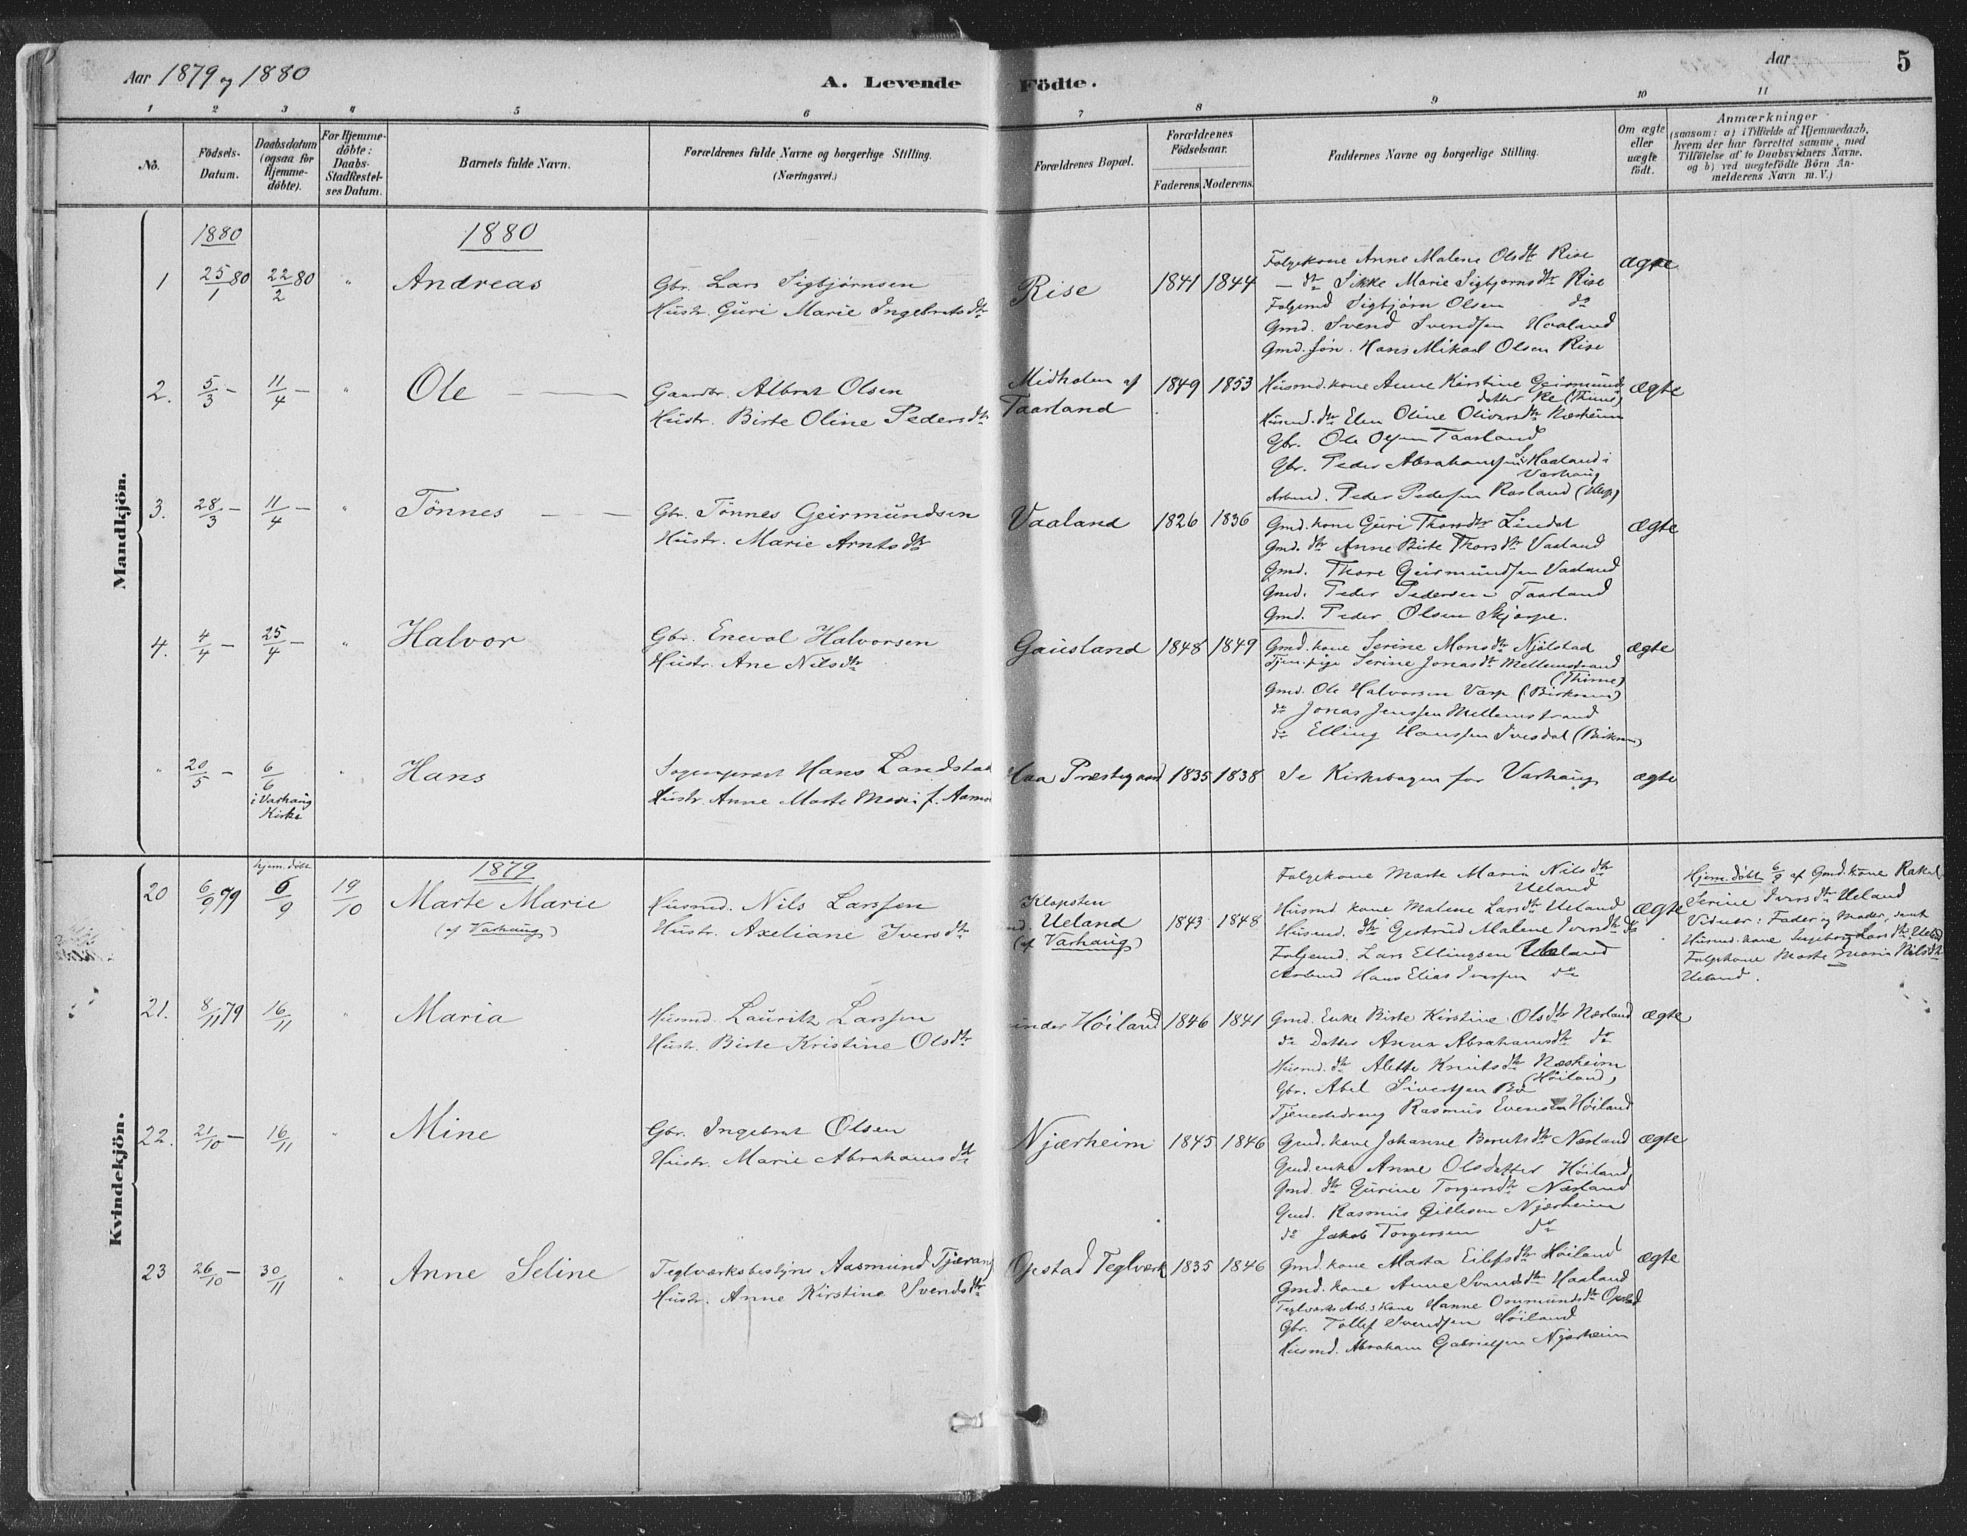 Aar 1879 og 1880
A. Levende Födte.
Aar
5
1 2 3 4 5 6 7 8 9 10 11
No.
Födsels-
Datum.
Daabsdatum
(ogsaa for
Hjemme-
döbte).
For Hjemme-
döbte:
Daabs-
Stadfæstel-
ses Datum.
Barnets fulde Navn.
Forældrenes fulde Navne og borgerlige Stilling.
(Næringsvei.)
Forældrenes Bopæl.
Forældrenes
Födselsaar.
Faderens. Moderens.
Faddernes Navne og borgerlige Stilling.
Om ægte
eller
uægte
födt.
Anmærkninger
(saasom: a) i Tilfælde af Hjemmedaab,
hvem der har forrettet samme, med
Tilföielse af to Daabsvidners Navne,
og b) ved uægtefödte Börn An-
melderens Navn m. V.)
Mandkjön.
1880
1880
1 25/1 80 22/2 80 " Andreas
Gbr. Lars Sigbjørnsen
Hustr. Guri Marie Ingebrets dtr
Rise 1841 1844
Folgekone Anne Malene Olsdtr Rise
— do Sikke Marie Sigbjørnsdtr Rise
Folgemd Sigbjørn Olsen do
Gmd. Svend Svendsen Haaland
Gmd. søn. Hans Mikael Olsen Rise
ægte
2. 5/3 — 11/4 — " Ole
Gaardbr. Albret Olsen
Hustr. Birte Oline Pedersdtr
Midholen af
Taarland
1849 1853
Husmd. kone Anne Kirstine Geirmunds
datter Re (Thime)
Husmd. dtr Elen Oline Oliversdtr Nærheim
Gbr. Ole Olsen Taarland
Gbr. Peder Abrahamsen Haaland i
Varhaug
Arbmd. Peder Pedersen Rosland (Klep)
ægte
3. 28/3 — 11/4 — " Tønnes
Gbr. Tønnes Geirmundsen
Hustr. Marie Arntsdtr
Vaaland 1826 1836
Gmd. kone Guri Thorsdtr Lindal
Gmd. dtr Anne Birte Thorsdtr Vaaland
Gmd. Thore Geirmundsen Vaaland
Gmd. Peder Pedersen Taarland
Gmd. Peder Olsen Skjærpe.
ægte
4. 4/4 — 25/4 — " Halvor
Gbr. Eneval Halvorsen
Hustr. Ane Nilsdtr
Gausland 1848 1849
Gmd. kone Serine Monsdtr Njølstad
Tjen. pige Serine Jonasdtr Mellemstrand
(Thime)
Gmd. Ole Halvorsen Vasp (Birkrem)
do Jonas Jenssen Mellemstrand
do Elling Hanssen Ivesdal (Birkrem)
ægte
" 20/5 — 6/6 " Hans
i Varhaug
Kirke
Sogneprest Hans Landstad
Hustr. Anne Marte Marie f. Aamo
Haa Præstegaard 1835 1838
Se Kirkebogen for Varhaug
ægte
Kvindekjön.
1879
hjem. døbt
20 6/9 79 6/9 19/10 Marte Marie
(af Varhaug)
Husmd. Nils Larssen
Hustr. Axeliane Iversdtr
Klopsten
und. Ueland
(af Varhaug)
1843 1848
Folgekone Marte Maria Nilsdtr
Ueland
Husmd kone Malene Larsdtr Ueland
Husmd. dtr Gertrud Malene Iversdtr do
Folgemd. Lars Ellingsen Ueland
Arbmd Hans Elias Iversen do
ægte
Hjem. døbt 6/9 af Gmd. kone Rakel
Serine Iversdtr Ueland
Vidner: Fader og Moder, samt
Husmd. kone Ingeborg Larsdtr Ueland
Folgekone Marte Maria Nilsdtr
Ueland.
21. 8/11 79 16/11 " Maria
Husmd. Lauritz Larssen
Hustr. Birte Kristine Olsdtr
under Høiland 1846 1841
Gmd. Enke Birte Kirstine Olsdtr Nærland
do Datter Anna Abrahamsdtr do
Husmd. dtr Alette Knutsdtr Næsheim
(Høiland)
Gbr. Abel Sivertsen Bø
Tjenestedreng Rasmus Evensen Høiland
ægte
22. 21/10 — 16/11 " Mine
Gbr. Ingebret Olsen
Hustr. Marie Abrahamsdtr
Njærheim 1845 1846
Gmd. kone Johanne Berntsdtr Nærland
Gmd. enke Anne Olsdatter Høiland
Gmd. dtr Gurine Torgersdtr Nærland
Gmd. Rasmus Gitlesen Njærheim
do Jakob Torgersen do
ægte
23 26/10 — 30/11 " Anne Seline
Teglværksbestyrer Aasmund Tjærand
Hustr. Anne Kirstine Svendsdtr
Opstad Teglværk 1835 1846
Gmd. kone Marta Eilefsdtr Høiland
Gmd. kone Anne Svendsdtr Haaland
Teglværks Arb.s kone Hanne Ommundsdtr Opstad
Gbr. Tollef Svendsen Høiland
Husmd. Abraham Gabrielsen Njærheim
ægte